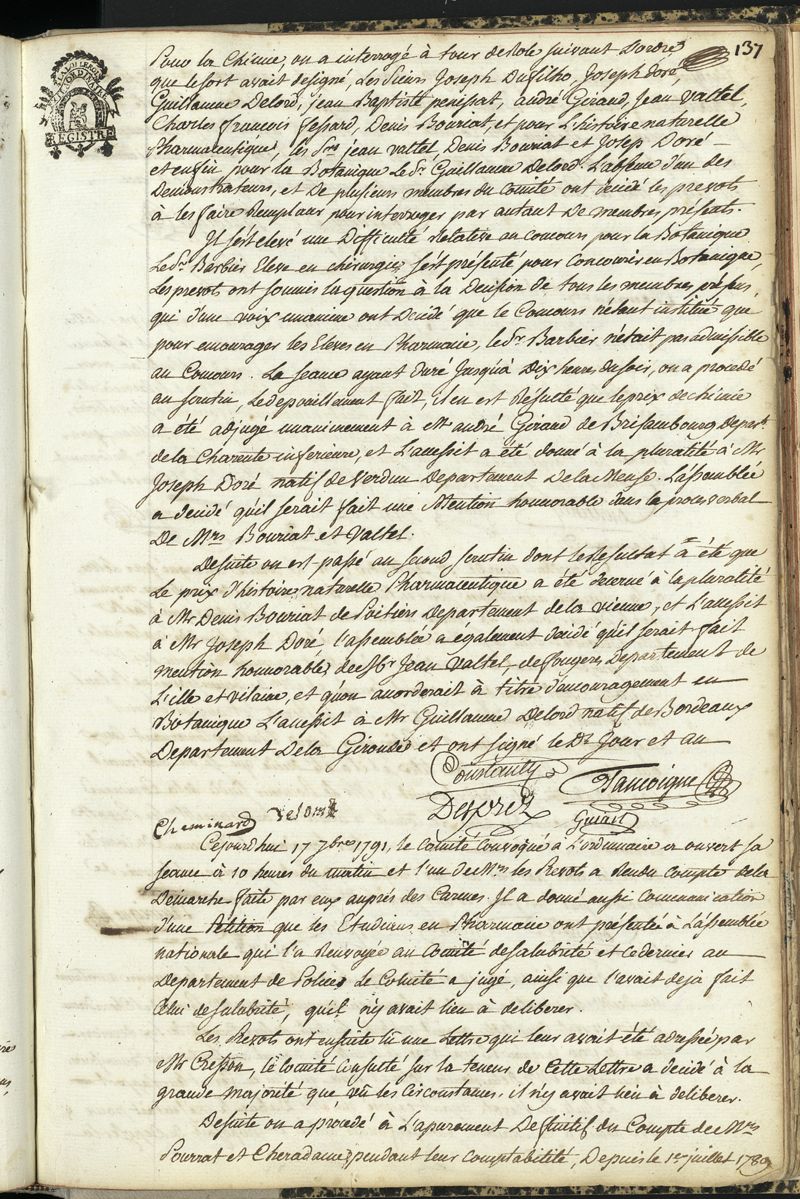 137
LA LOI LE ROI
REGISTRE
Pour la Chimie, on a interrogé à tour de Role suivant L'ordre
que le sort avait designé, Les Sieurs Joseph Dufilho, Joseph doré,
Guillaume Delord, jean Baptiste penissat, andré Giraud, Jean Valtel,
Charles François fessard, Denis Bouriat, et pour L'histoire naturelle
Pharmaceutique, les Srs jean valtel Denis Bouriat et Josep Doré
et enfin pour la Botanique Le Sr. Guillaume Delord. L'absence d'un des
Demonstrateurs, et De plusieurs membres du Comité ont decidé les prevots
à les faire Remplacer pour interroger par autant De membres présents.
Il s'est elevé une Difficulté Relative au concours pour la Botanique
Le Sr. Barbier Eleve en chirurgie, s'est présenté pour Concourir en Botanique,
Les prevots ont soumis la question à la Decision de tous les membres présens,
qui d'une voix unanime ont Decidé que le Concours n'étant institué que
pour encourager les Eleves en Pharmacie, le Sr Barbier n'était pas admissible
au Concours. La seance ayant duré Jusqu'à Dix heures du soir, on a procedé
au scrutin, Le depouillement fait, il en est Resulté que le prix de chimie
a été adjugé unanimement à Mr andré Giraud de Brisambourg, depart.
de la Charente inferieure, et L'accessit a été donné à la pluralité à Mr
Joseph Doré natif de Verdun Departement De la Meuse. L'assemblée
a decidé qu'il serait fait une Mention honnorable dans le procès verbal
De Mrs Bouriat et Valtel.
Desuite on est passé au second scrutin dont le Resultat a été que
Le prix d'histoire naturelle Pharmaceutique a été decerné à la pluralité
à Mr Denis Bouriat de Poitiers Departement de la vienne, et L'accessit
à Mr Joseph Doré, l'assemblée a également decidé qu'il serait fait
mention honorable, de Sr Jean Valtel, de fougeres Departement de
L'ille et vilaine, et qu'on accorderait à titre d'encouragement en
Botanique L'accessit à Mr Guillaume Delord natif de Bordeaux
Departement De la Gironde et ont signé le Dt Jour et an
Tancoigne
Desprez
Guiart
Cheminard
Cejourdhui 17 7bre 1791, le Comité Convoqué à L'ordinnaire a ouvert sa
seance à 10 heures du matin et l'un de Mrs les Prevots a Rendu compte de la
Demarche faite par eux auprés des Carmes. Il a donné aussi communication
d'une Petition que les Etudiens en Pharmacie ont présentée à L'assemblée
nationale qui l'a Renvoyée au Comité de salubrité et ce dernier au
Departement de Police, Le Comité a jugé, ainsi que l'avait deja fait
Celui de salubrité, qu'il n'y avait lieu à deliberer.
Les Prevots ont ensuite lû une Lettre qui leur avait été adressée par
Mr Cresson, le Comité consulté sur la teneur de Cette Lettre a decidé à la
grande majorité que vû les Circonstances, il n'y avait lieu à deliberer.
Desuite on a procédé à L'apurement Definitif du Compte de Mrs
Pourrat et Cheradame, pendant leur comptabilité, Depuis le 1er juillet 1789